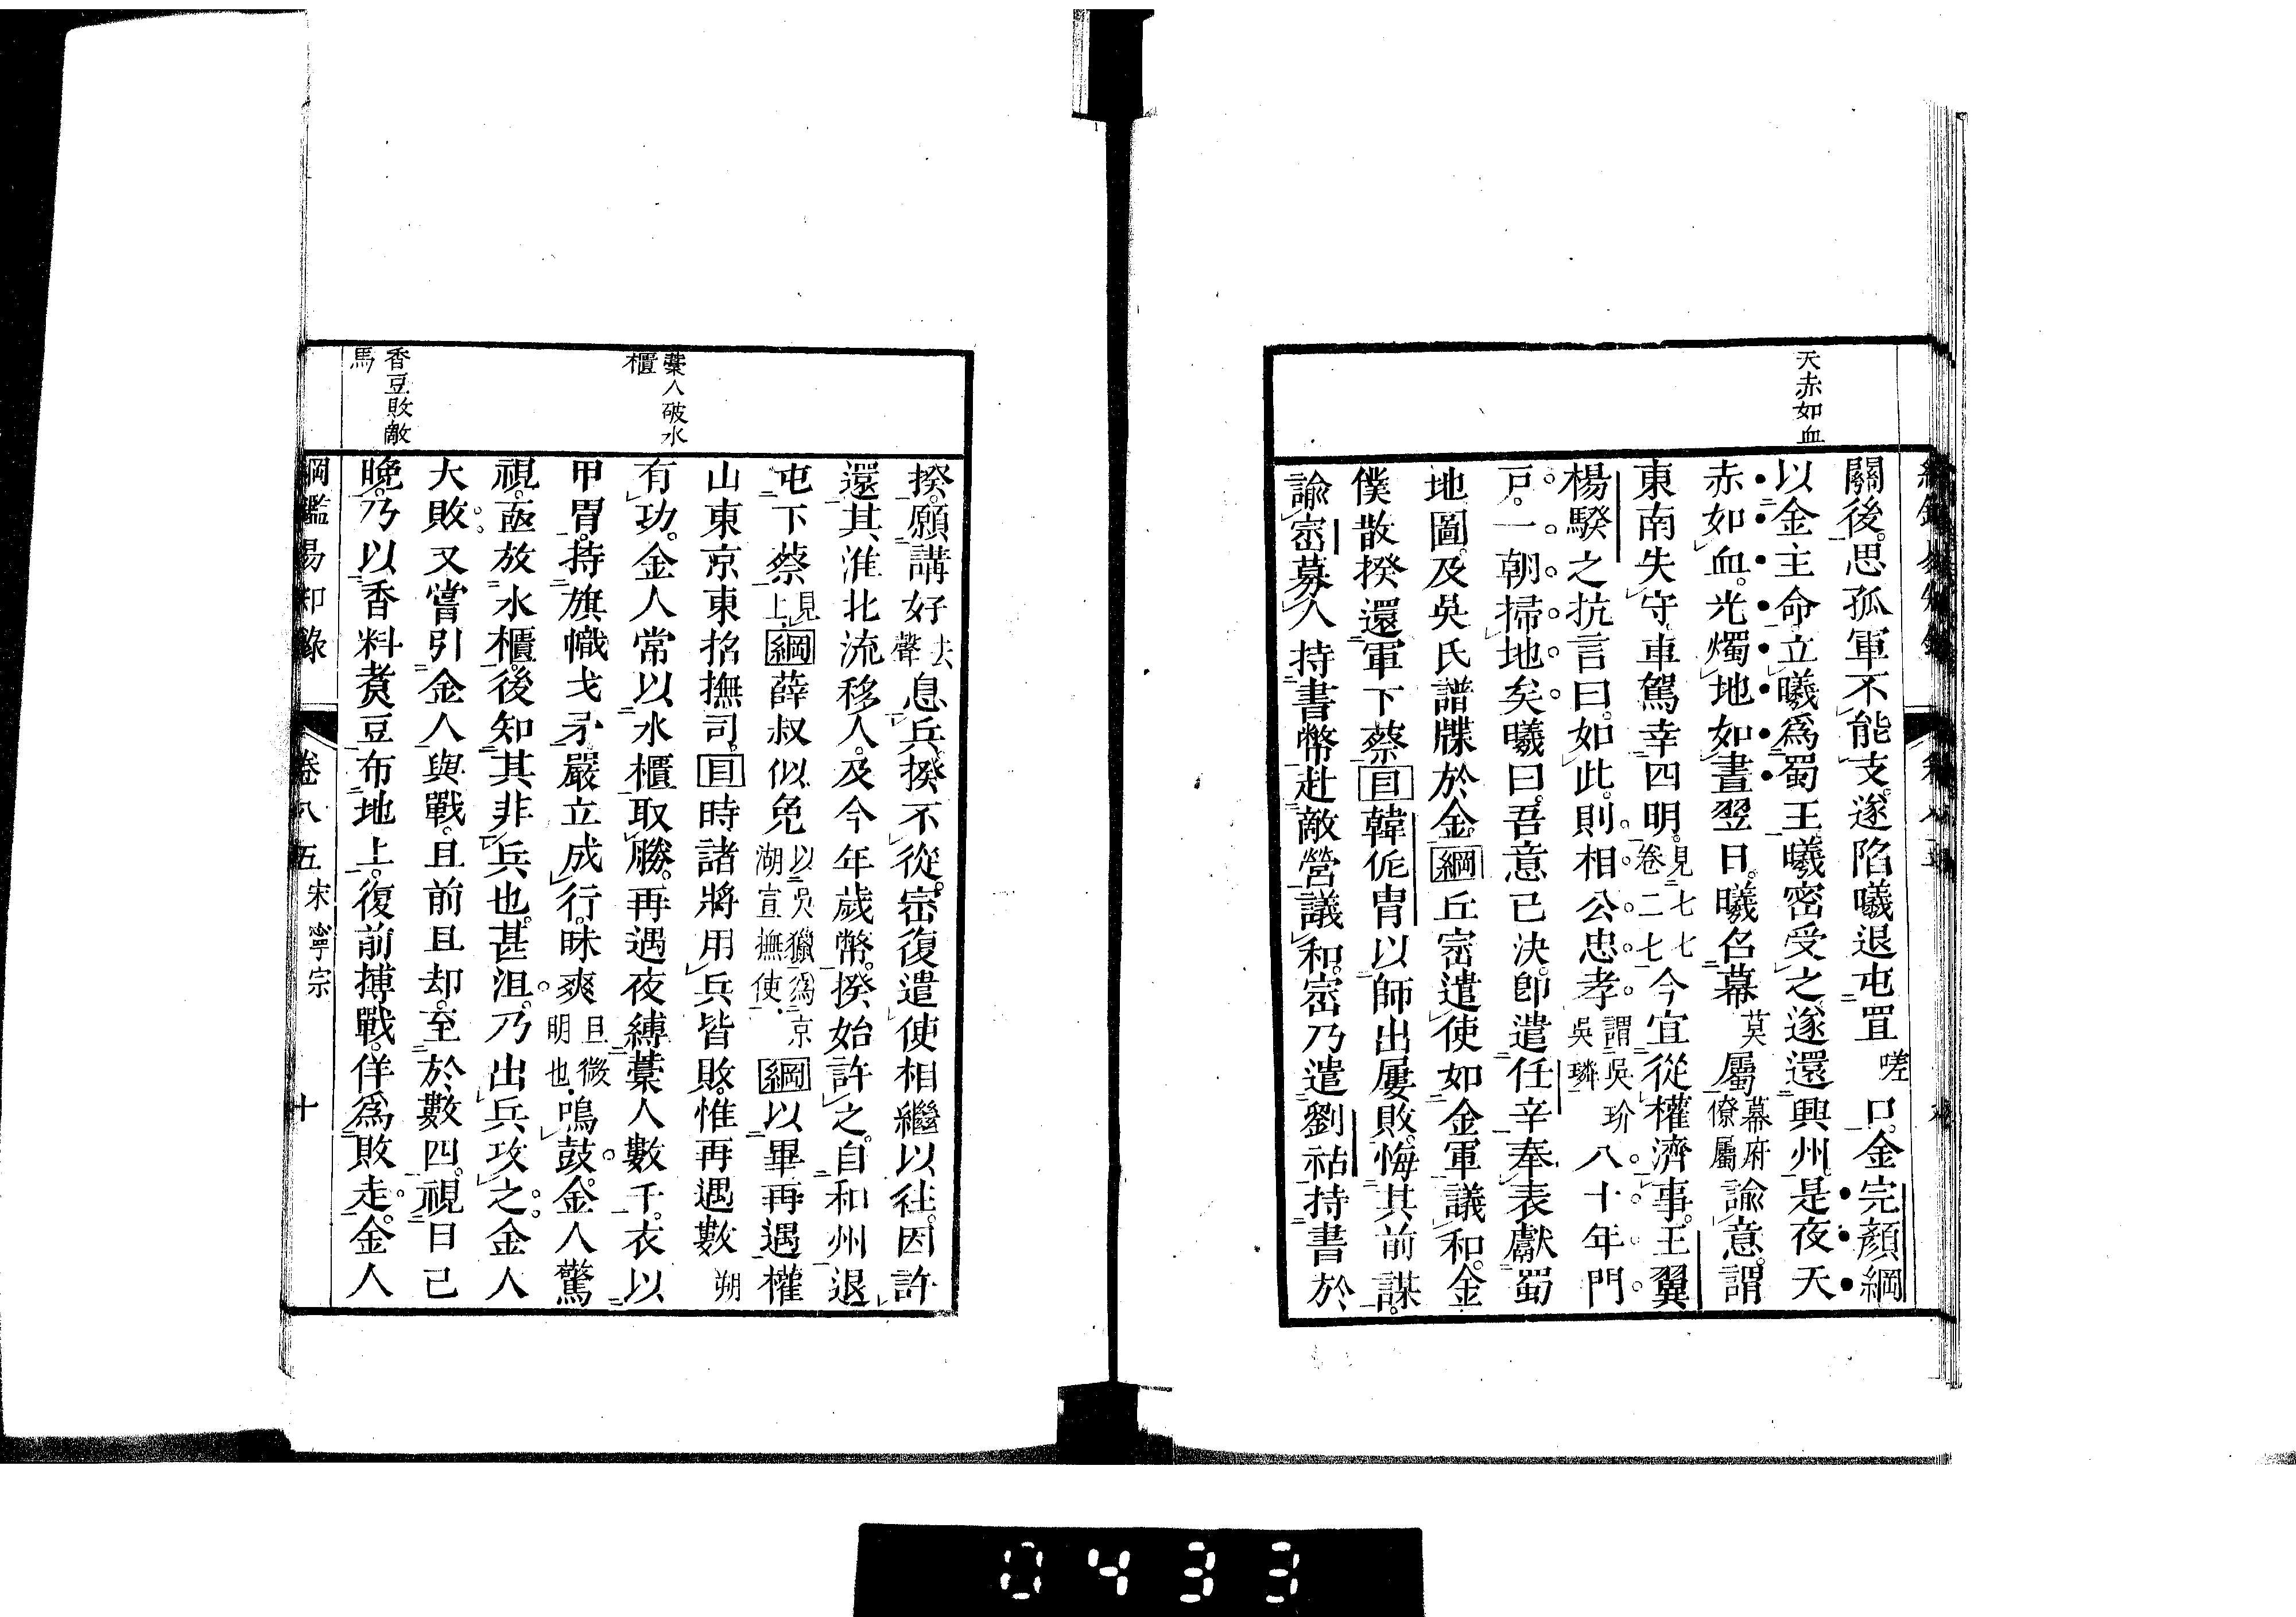 天赤如血
關後。思孤軍不能支。遂陷曦退屯罝嗟口。金完顏綱
以金主命立曦爲蜀王。曦密受之。遂還興州。是夜天
赤如血。光燭地如晝翌日。曦名幕莫屬幕府僚屬諭意。謂
東南失守。車駕幸四明。見七七卷二七今宜從權濟事。王翼
楊騤之抗言曰。如此。則相公忠孝謂吳玠吳璘八十年門
戸。一朝掃地矣。曦曰。吾意已決。卽遣任辛奉表獻蜀
地圖。及吳氏譜牒於金。綱丘崈遣使如金軍議和。金
僕散揆還軍下蔡目韓侂胄以師出屢敗。悔其前謀。
諭崈募人持書幣赴敵營議和。崈乃遣劉祐持書於
揆。願講好去聲息兵。揆不從。崈復遣使相繼以往。因許
還其淮北流移人。及今年歲幣。揆始許之。自和州退
屯下蔡見上。綱薛叔似免以吳獵爲京湖宣撫使。綱以畢再遇權
山東京東招撫司。目時諸將用兵皆敗。惟再遇數朔
有功。金人常以水櫃取勝。再遇夜縛藁人數千。衣以
甲胃。持旗幟戈矛。嚴立成行。昧爽旦微明也。鳴鼓。金人驚
視。亟放水櫃。後知其非兵也。甚沮。乃出兵攻之。金人
大敗。又嘗引金人與戰。且前且却。至於數四。視日已
晚。乃以香料煑豆布地上。復前搏戰。佯爲敗走。金人
藁人破水櫃
香豆敗敵馬
綱鑑易知錄 卷八五 宋寧宗 十
0433